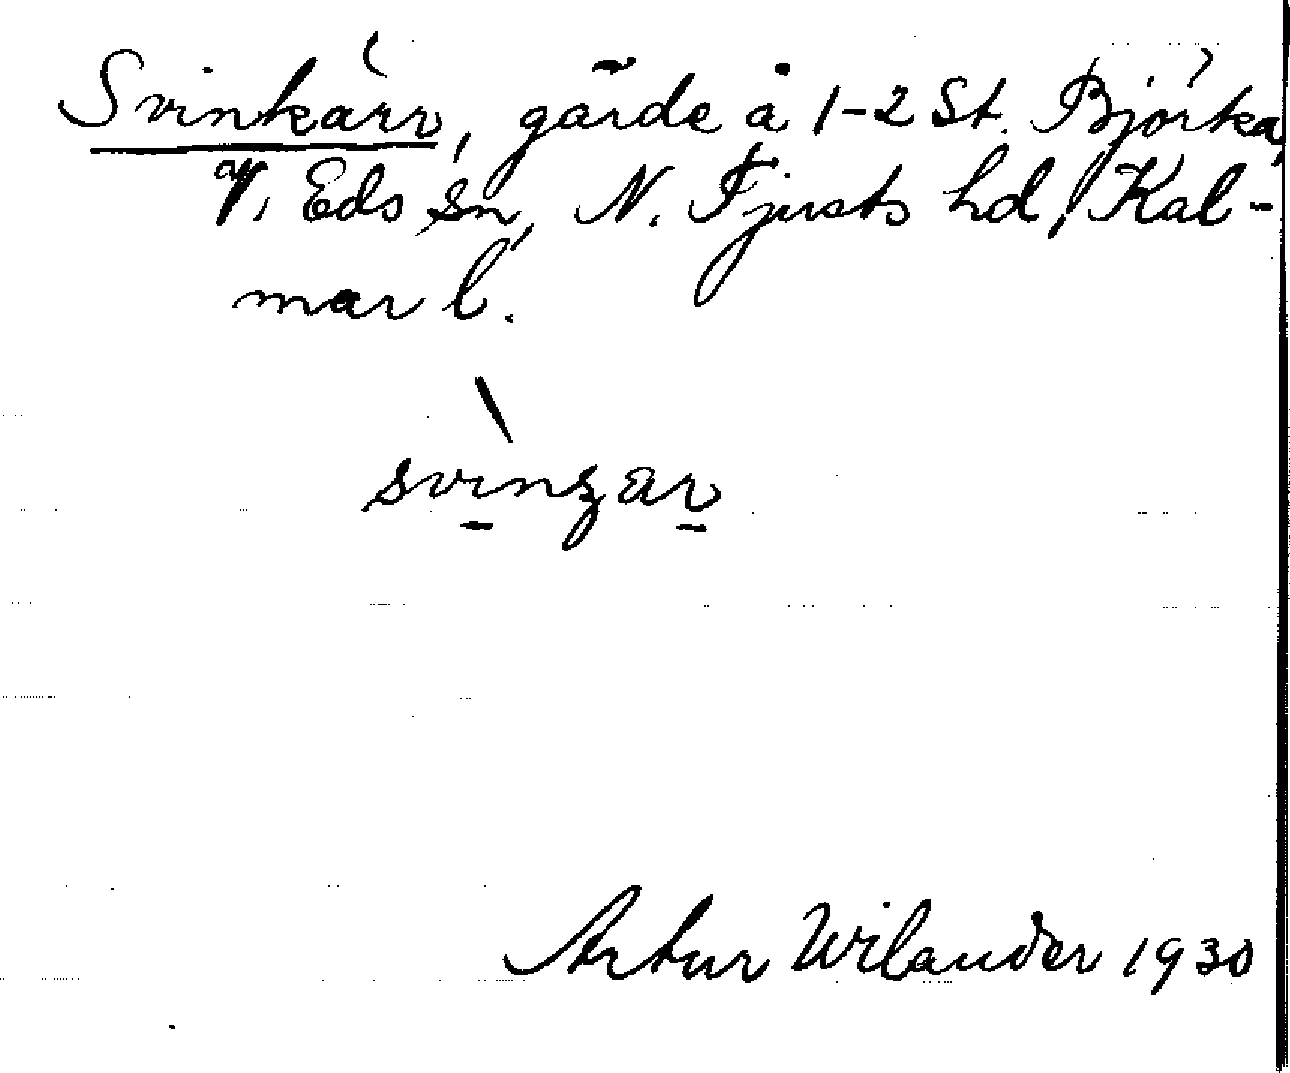 Svinkärr, gärde å 1-2 St. Björka,
V. Eds sn, N. Tjusts hd, Kal-
mar l.
svinzar
Artur Wilander 1930